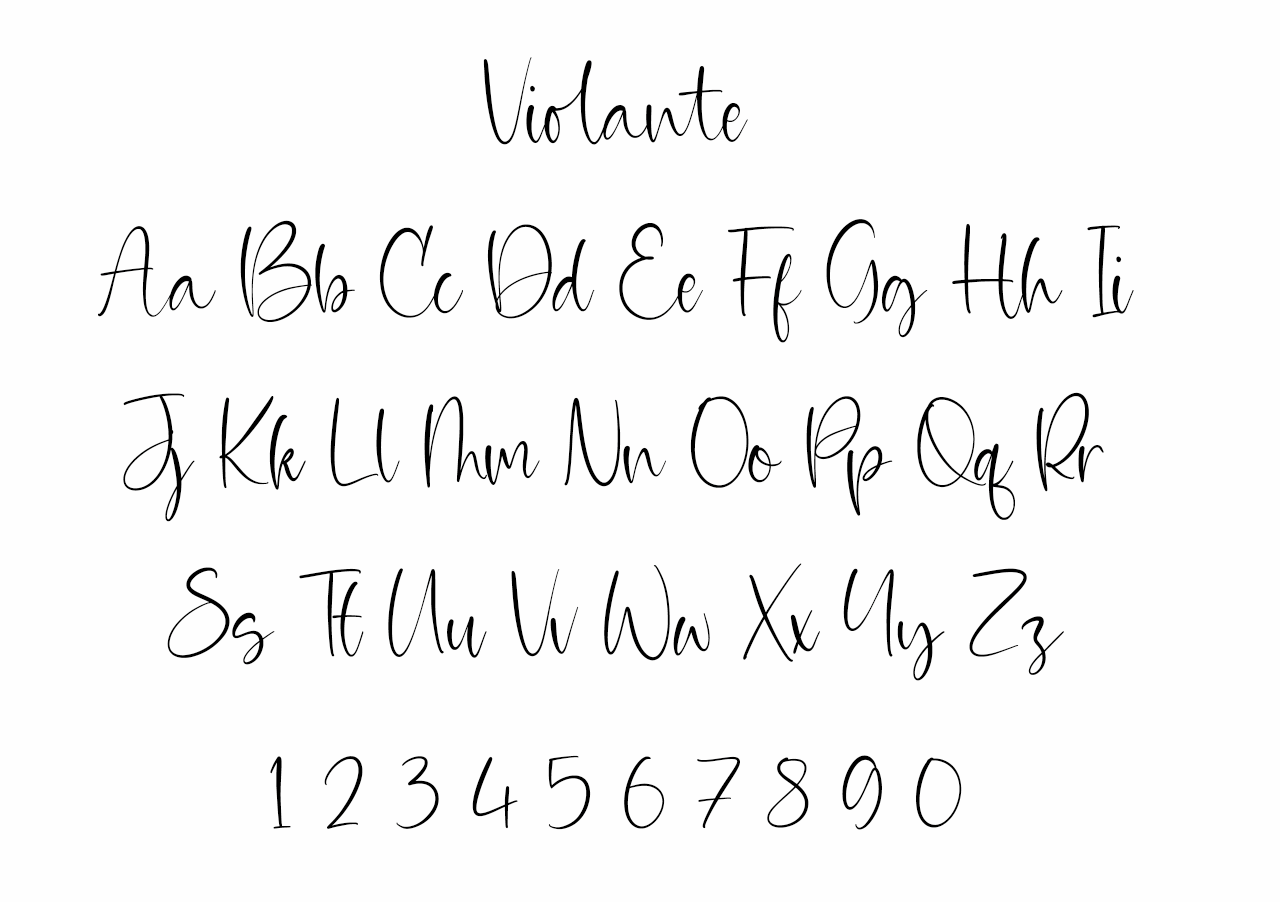 Violante
Aa Bb Cc Dd Ee Ff Gg Hh Ii
Jj Kk Ll Mm Nn Oo Pp Qq Rr
Ss Tt Uu Vv Ww Xx Yy Zz
1 2 3 4 5 6 7 8 9 0